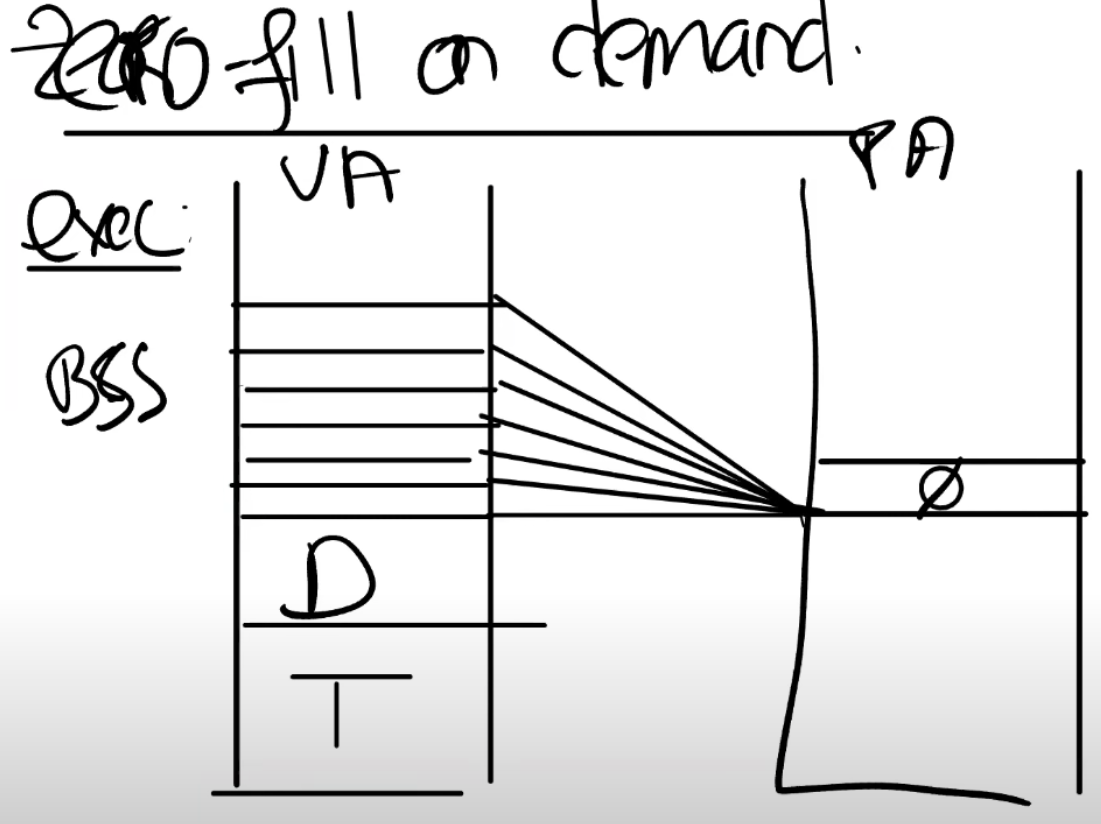 zero-fill on demand.
VA PA
exec:
BSS
Ø
D
T